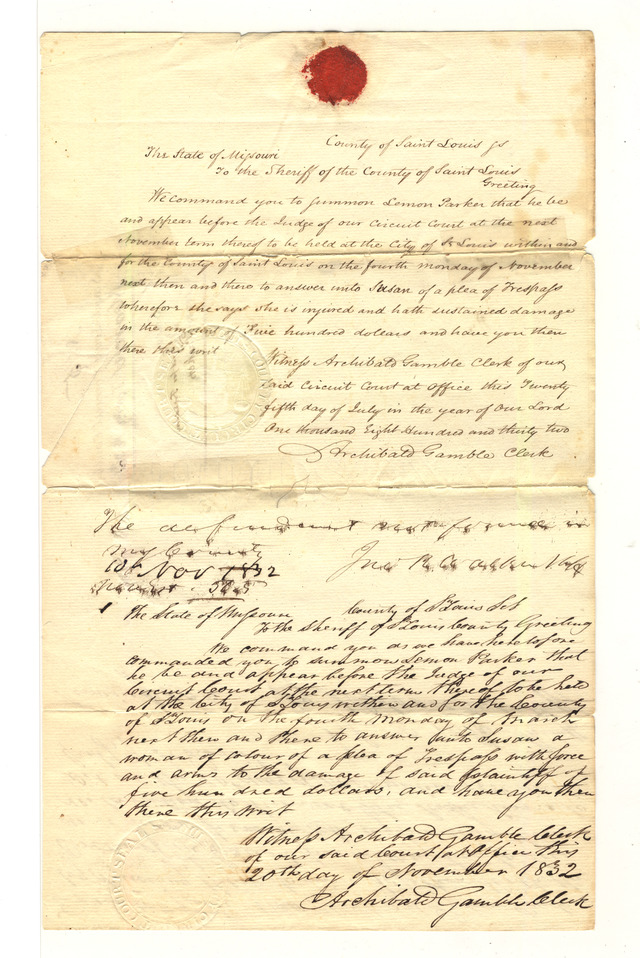 County of Saint Louis ss
The State of Missouri
To the Sheriff of the County of Saint Louis
Greeting
We command you to Summon Lemon Parker that he be
and appear before the Judge of our Circuit Court at the next
November term thereof to be held at the City of St Louis within and
for the County of Saint Louis on the fourth monday of November
next then and there to answer unto Susan of a plea of Trespass
wherefore she says she is injured and hath sustained damage
in the amount of Five hundred dollars and have you then
there this writ
Witness Archibald Gamble Clerk of our
said Circuit Court at office this Twenty
fifth day of July in the year of Our Lord
One thousand Eight Hundred and thirty two
Archibald Gamble Clerk
The defendant not found in
my County
10th Nov 1832
The State of Missouri County of St Louis Sct
To the Sheriff of St Louis County Greeting
We command you as we have heretofore
commanded you to summon Lemon Parker that
he be and appear before the Judge of our
Circuit Court at the next term thereof to be held
at the City of St Louis within and for the County
of St Louis on the fourth Monday of March
next then and there to answer unto Susan a
woman of colour of a plea of Trespass with force
and arms to the damage of said plaintiff of
five hundred dollars, and have you then
there this writ
Witness Archibald Gamble Clerk
of our said Court at Office this
20th day of November 1832
Archibald Gamble Clerk